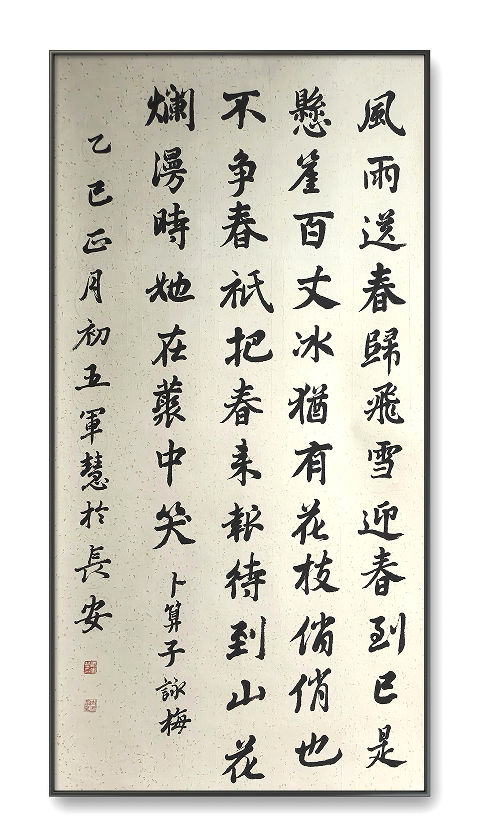 風雨送春歸飛雪迎春到已是
懸崖百丈冰猶有花枝俏俏也
不争春祇把春来報待到山花
爛漫時她在叢中笑
卜算子詠梅
乙巳正月初五軍慧於長安